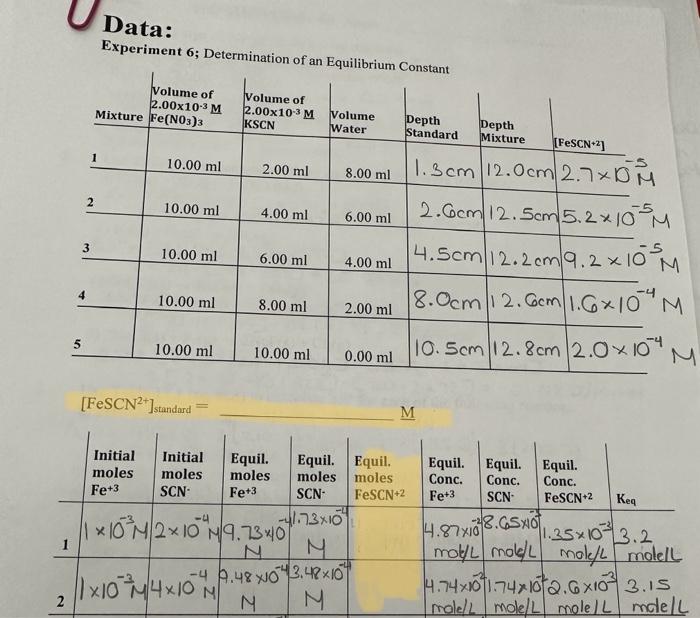 Data:
Experiment 6; Determination of an Equilibrium Constant
Mixture Volume of 2.00x10-3 M Fe(N03)3 Volume of 2.00x10-3 M KSCN Volume Water Depth Standard Depth Mixture [FeSCN+2]
1 10.00 ml 2.00 ml 8.00 ml 1.3cm 12.0cm 2.7×10⁻⁵ M
2 10.00 ml 4.00 ml 6.00 ml 2.6cm 12.5cm 5.2×10⁻⁵ M
3 10.00 ml 6.00 ml 4.00 ml 4.5cm 12.2cm 9.2×10⁻⁵ M
4 10.00 ml 8.00 ml 2.00 ml 8.0cm 12.6cm 1.6×10⁻⁴ M
5 10.00 ml 10.00 ml 0.00 ml 10.5cm 12.8cm 2.0×10⁻⁴ M
[FeSCN2+]standard = M
Initial moles Fe+3 Initial moles SCN- Equil. moles Fe+3 Equil. moles SCN- Equil. moles FeSCN+2 Equil. Conc. Fe+3 Equil. Conc. SCN- Equil. Conc. FeSCN+2 Keq
1 1×10⁻³M 2×10⁻⁴M 9.73×10⁻⁴ M 1.73×10⁻⁴ M 4.87×10⁻² mol/L 8.65×10⁻³ mole/L 1.35×10⁻³ mole/L 3.2 mole/L
2 1×10⁻³M 4×10⁻⁴ M 9.48×10⁻⁴ M 3.48×10⁻⁴ M 4.74×10⁻² mole/L 1.74×10⁻² mole/L 2.6×10⁻³ mole/L 3.15 mole/L